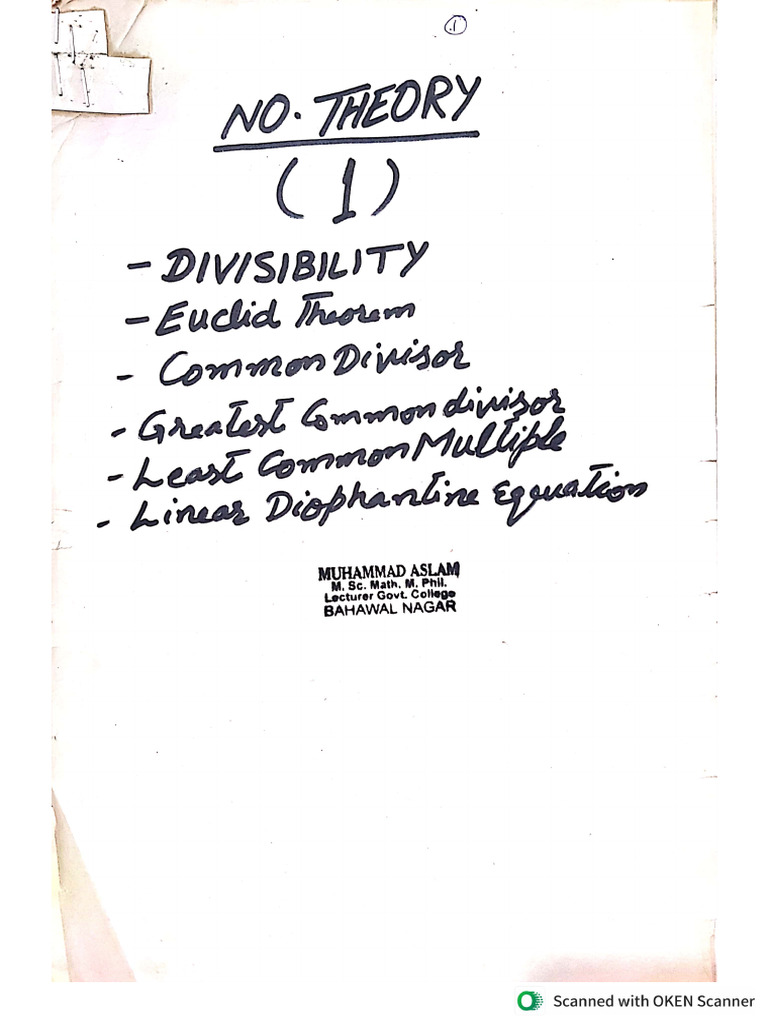 1
NO. THEORY
(1)
- DIVISIBILITY
- Euclid Theorem
- Common Divisor
- Greatest Common divisor
- Least Common Multiple
- Linear Diophantine Equation
MUHAMMAD ASLAM
M. Sc. Math. M. Phil.
Lecturer Govt. College
BAHAWAL NAGAR
Scanned with OKEN Scanner